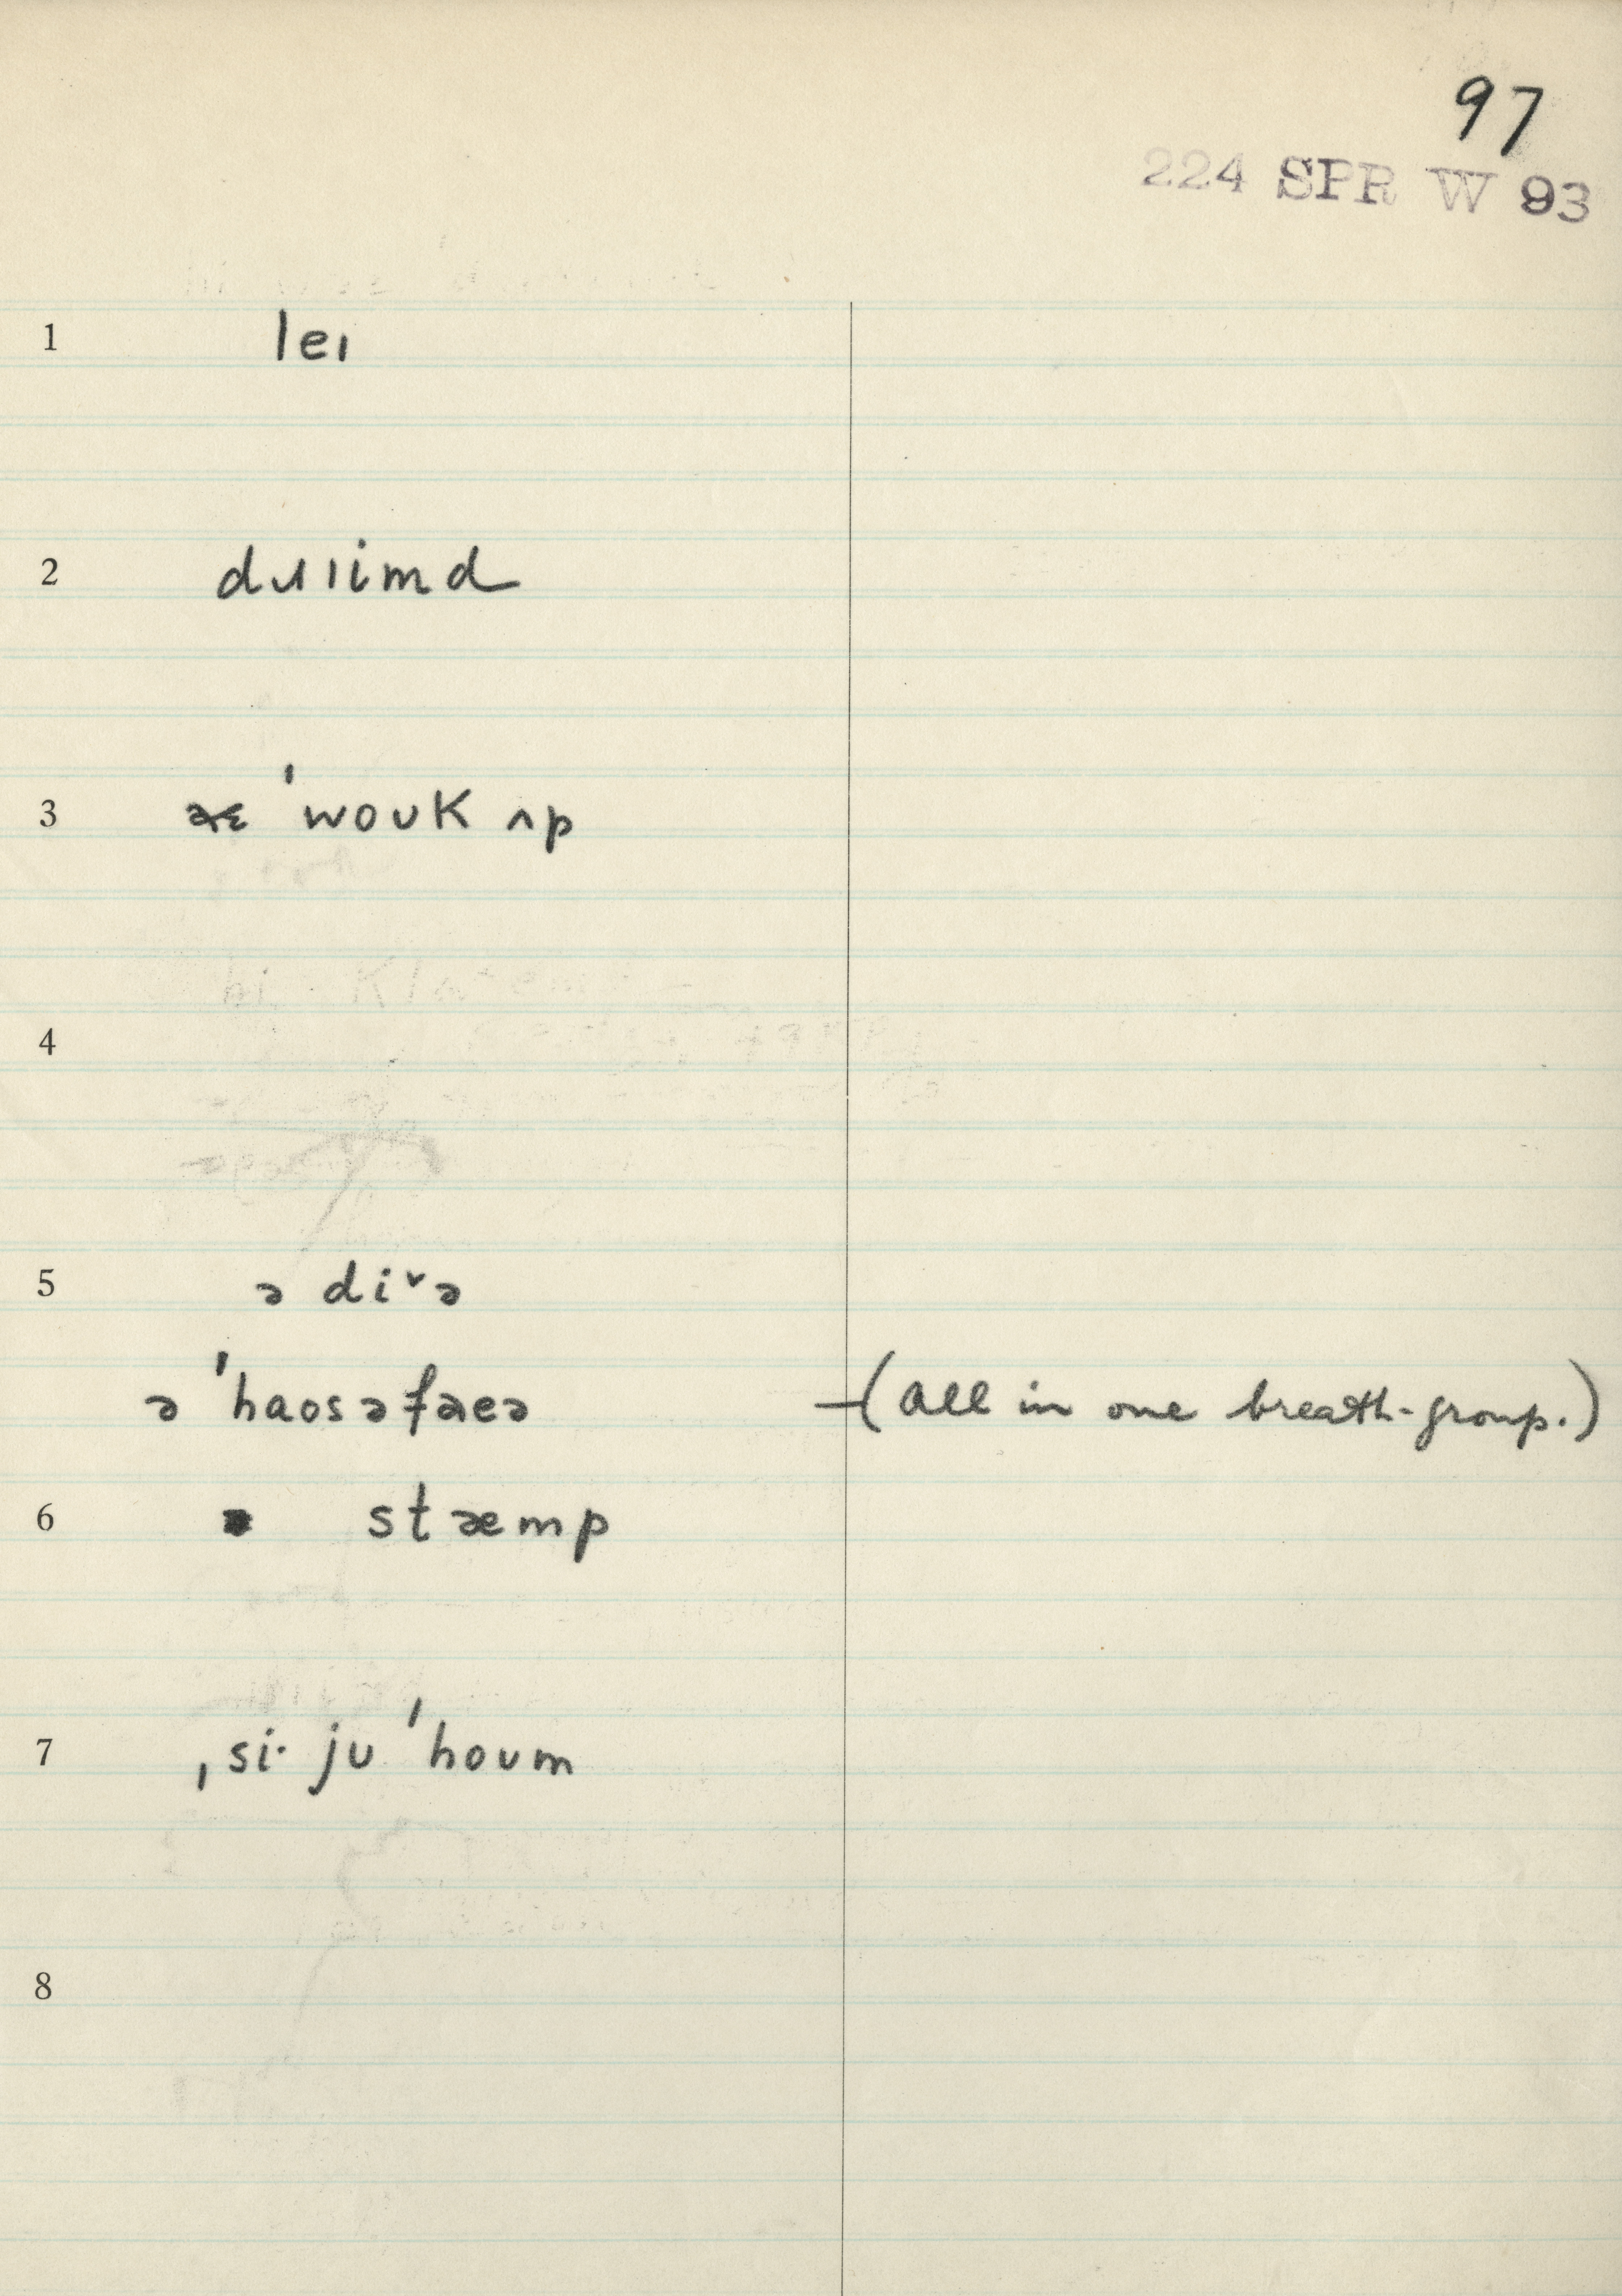 97
224 SPR W 93
1 leɪ
2 dɹɪimd
3 ˈwoʊk ʌp
4
5 ə diˇə
ə ˈhaosəfaeə (All in one breath-group.)
6 stæmp
7 ˌsi· jʊ ˈhoʊm
8